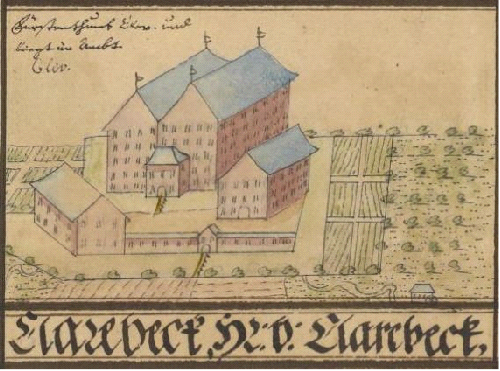 Fürstenthumb Clev. und
liegt im Ambt.
Clev.
Clarebeck, Hr. v. Clarebeck,